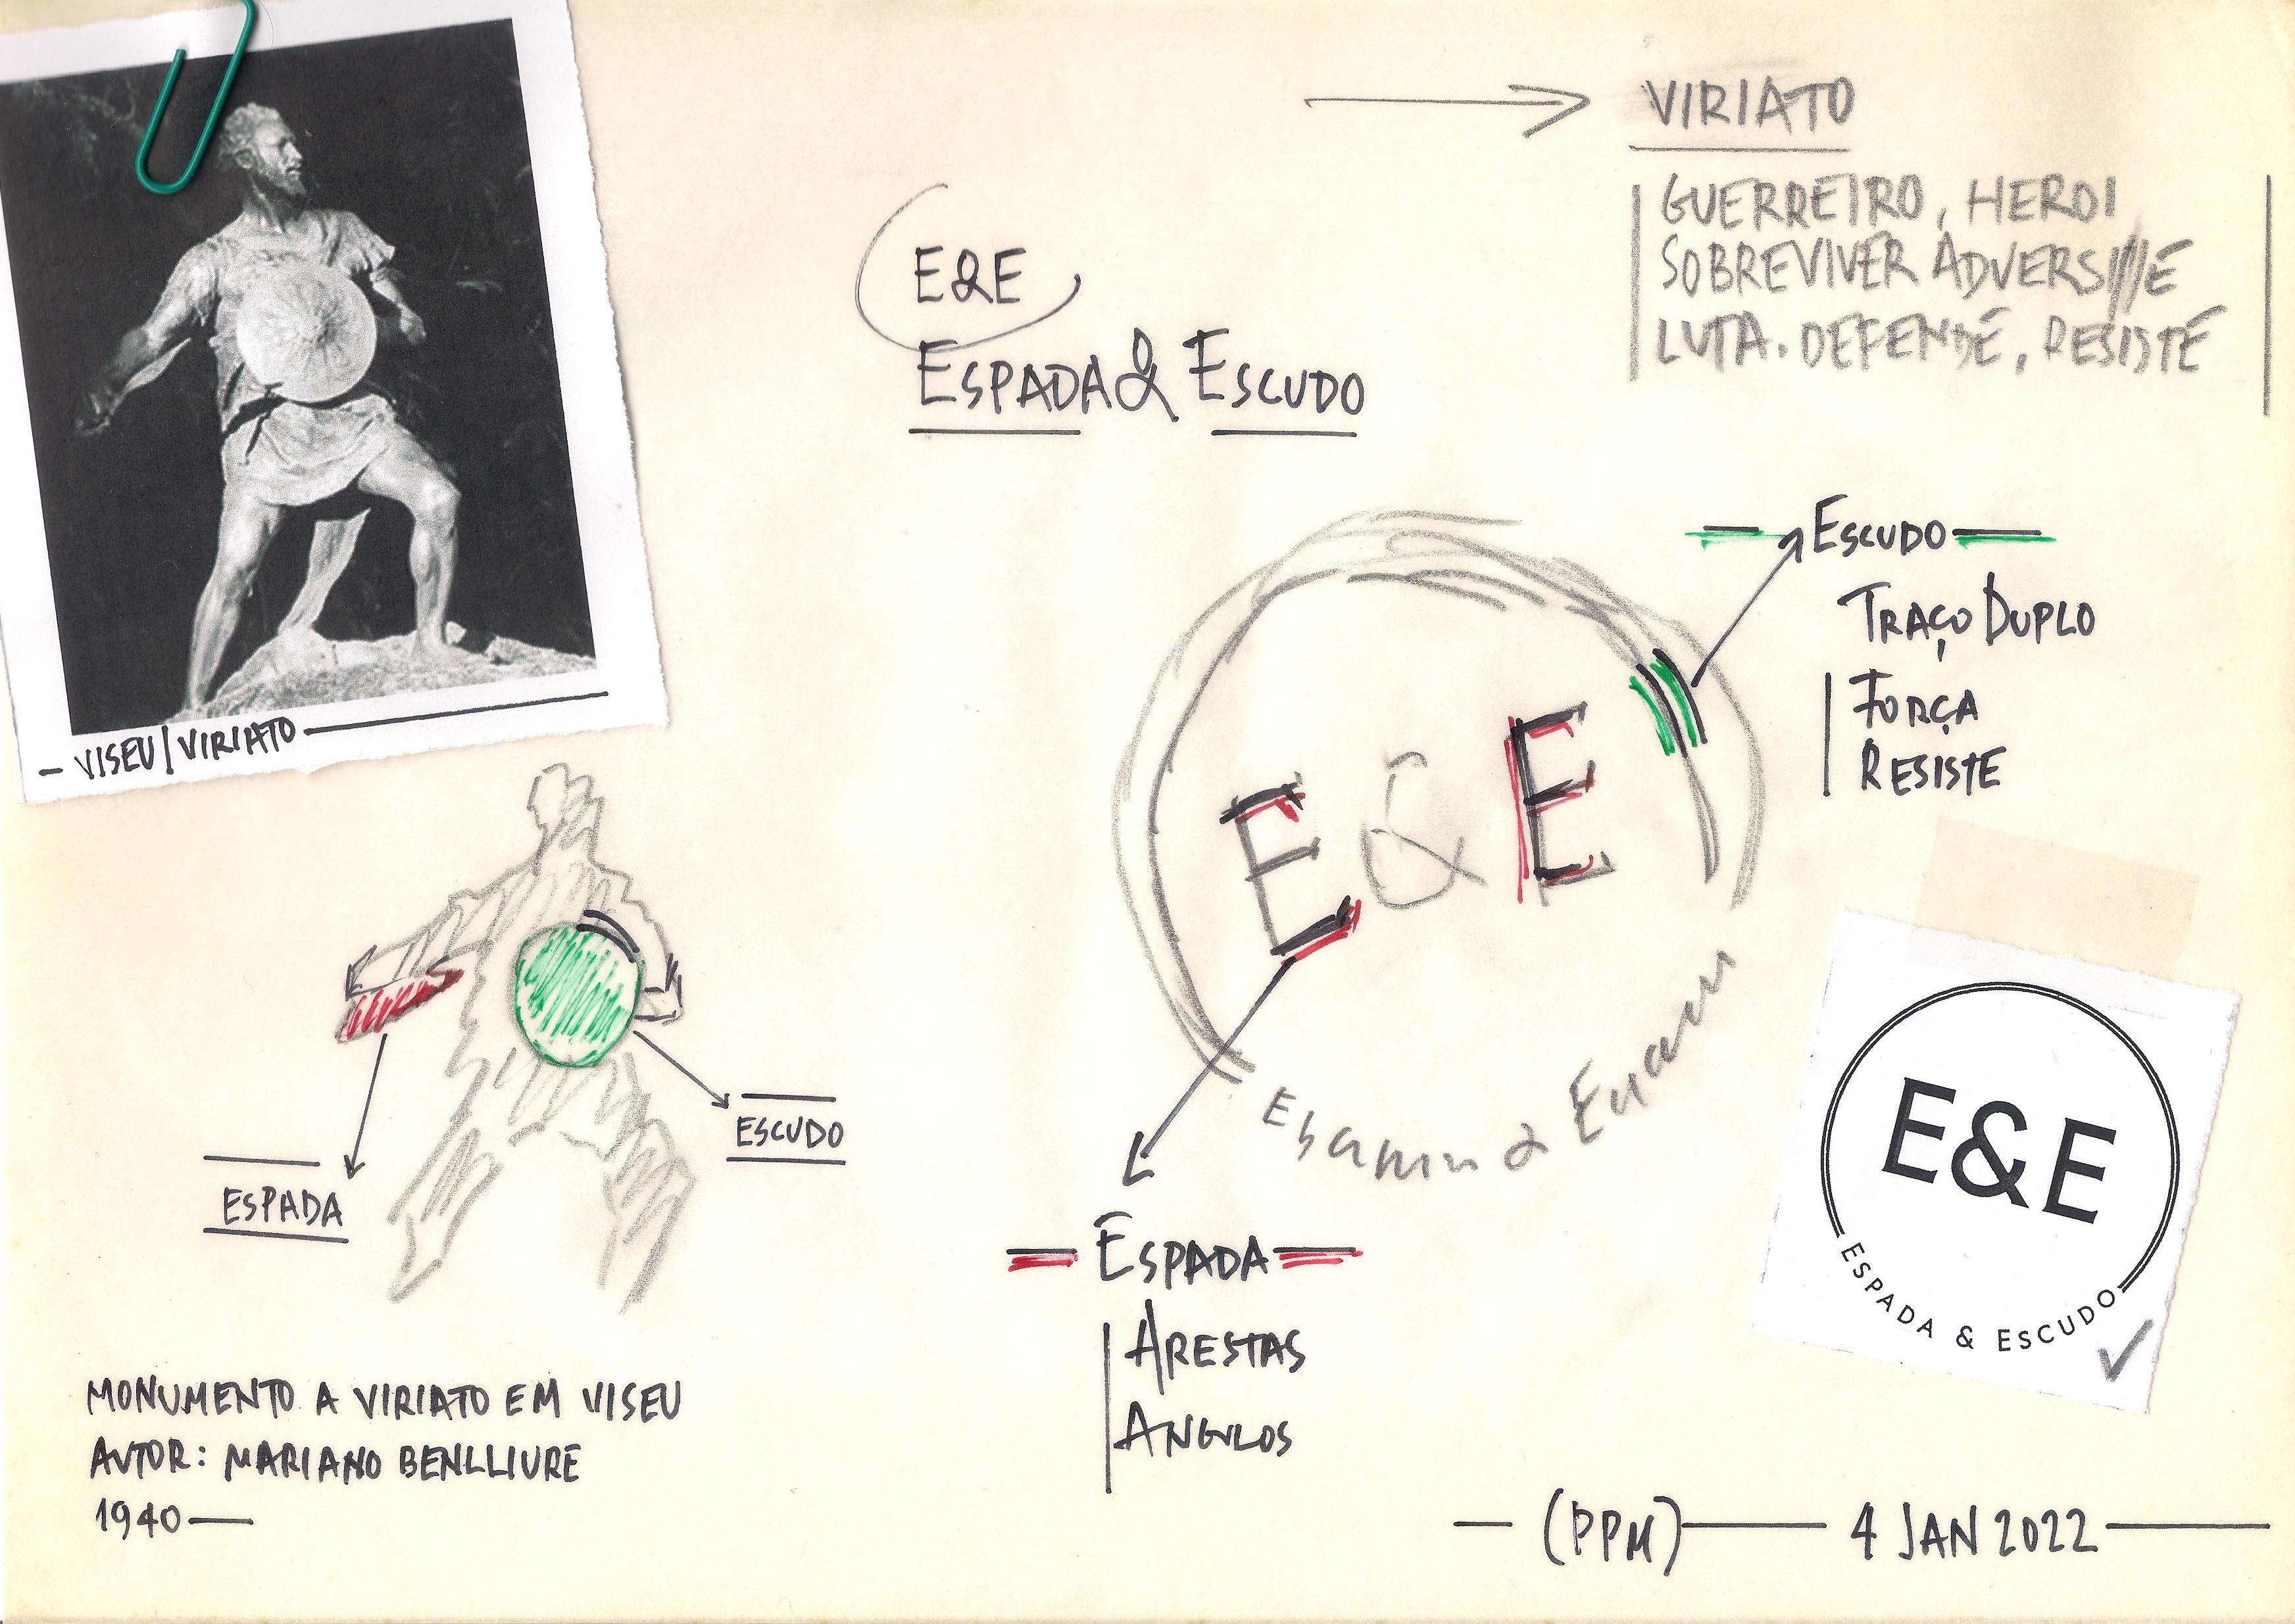 VIRIATO
GUERREIRO, HEROI
SOBREVIVER
LUTA. DEFENDE, RESISTE
E&E
ESPADA & ESCUDO
VISEU | VIRIATO
ESCUDO
TRAÇO DUPLO
FORÇA
RESISTE
E & E
ESPADA
ARESTAS
ANGULOS
ESCUDO
ESPADA
E&E
ESPADA & ESCUDO
MONUMENTO A VIRIATO EM VISEU
AUTOR: MARIANO BENLLIURE
1940
(PPM) 4 JAN 2022